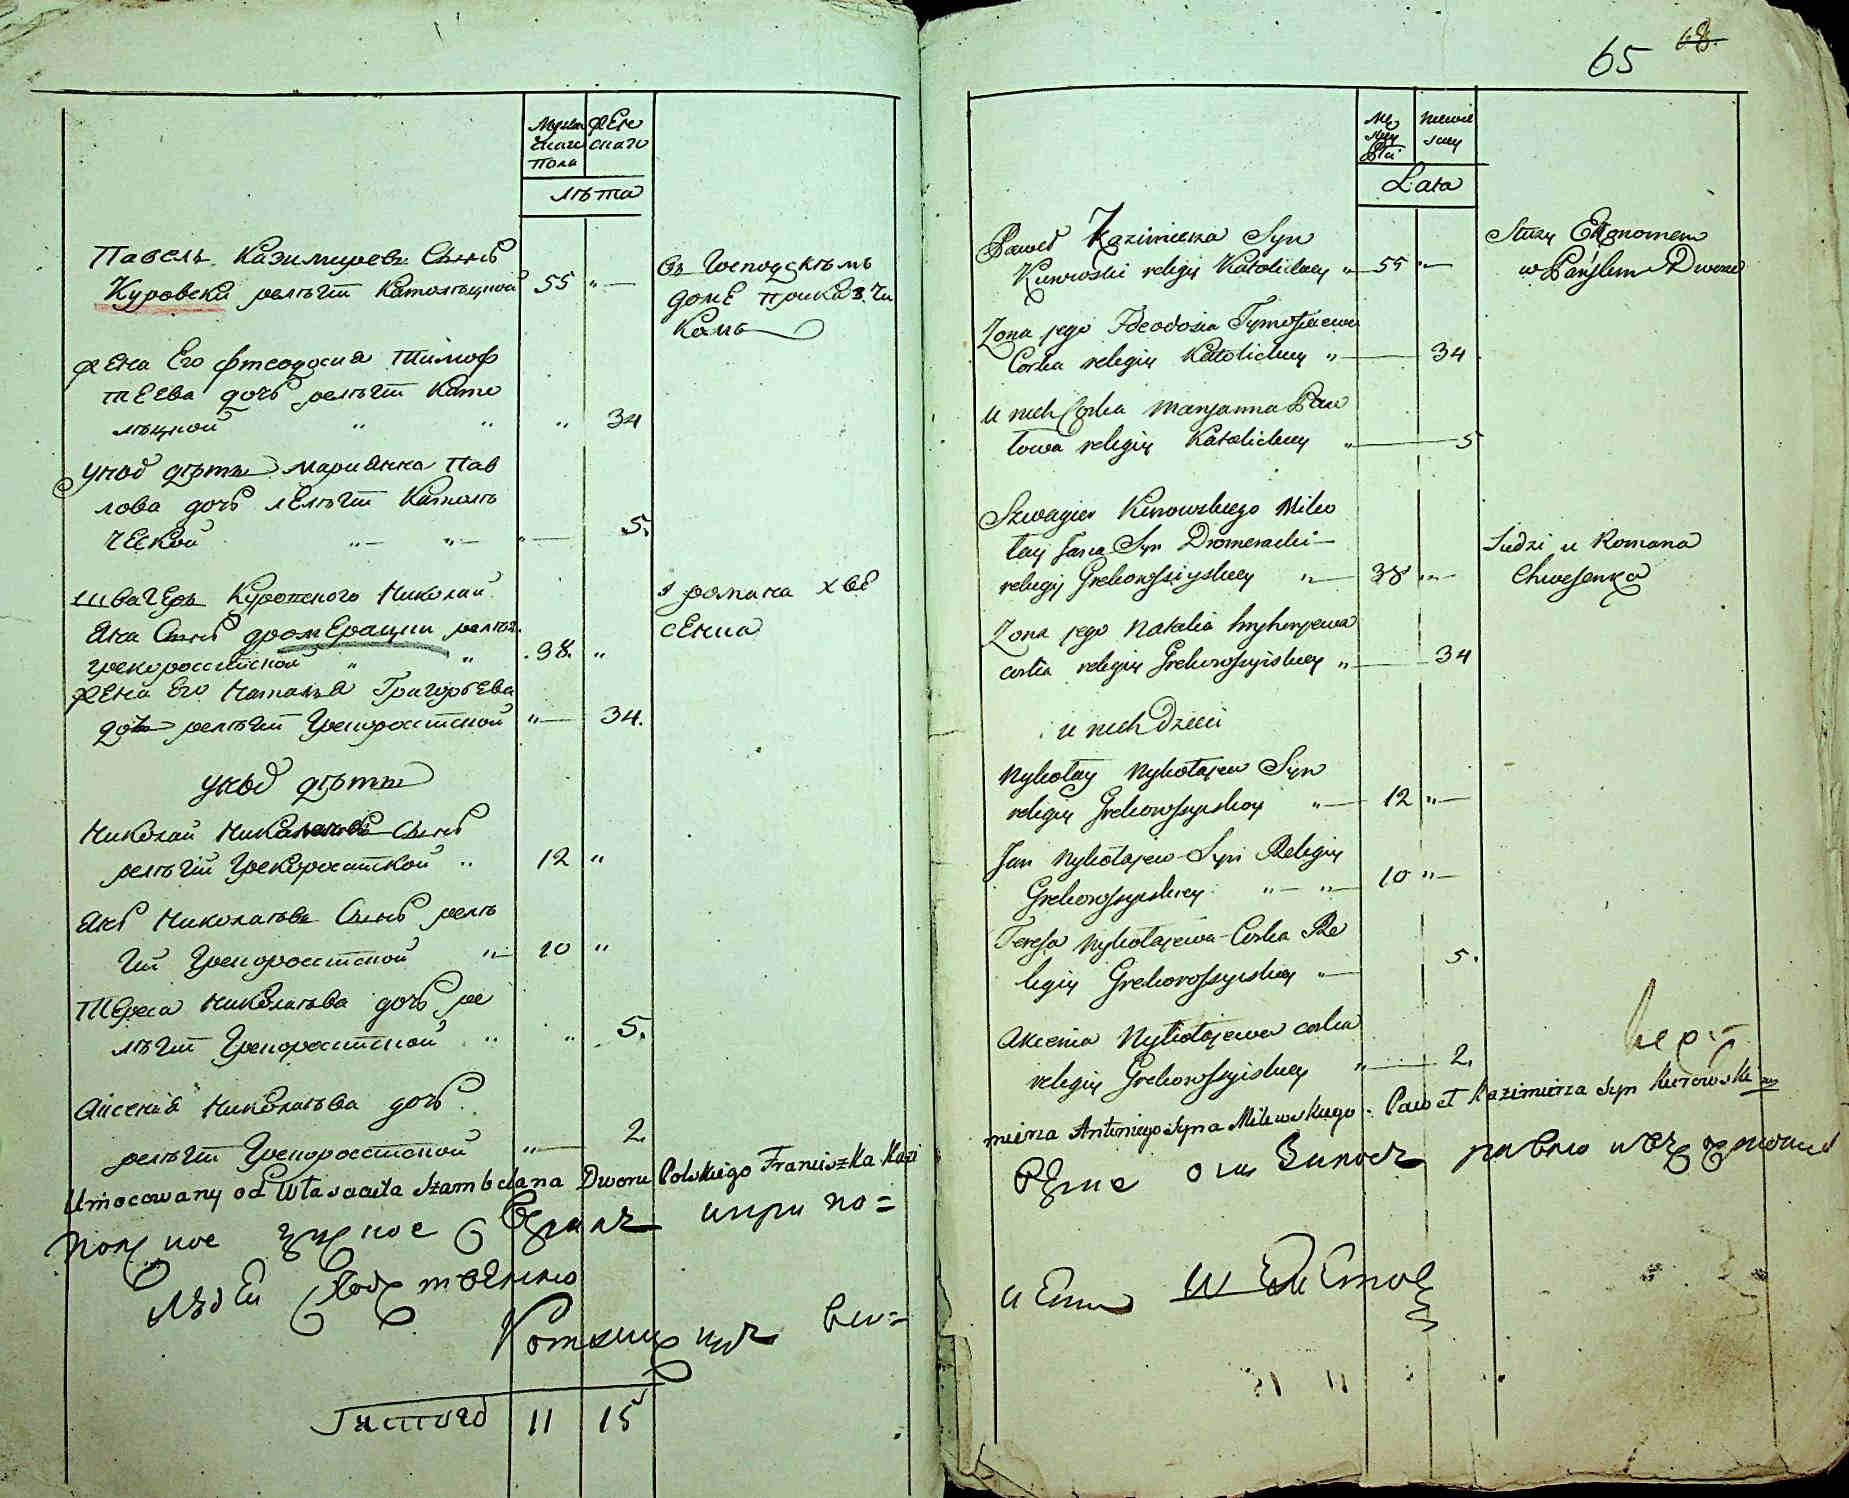 Мужескаго пола
Женскаго
лѣта
Павелъ Казимировъ Сынъ
Куровски религіи Католицкой 55 "
въ Господскомъ
доме приказчи
комъ
Жена Его Фтеодосия Тимоф
теева дочь религіи Като
лицкой " " " 34
у ныхъ дѣты Марианна Пав
лова дочь религіи Католи
ческой 5.
Швагеръ Куровского Николай
Яна Сынъ Дромерацки религіи
грекороссийской " " 38. "
у романа Хве
сенка
Жена Его Наталия Григорьева
дочь религіи Грекороссийской " 34.
у ныхъ дѣты
Николай Николаевъ Сынъ
религіи Грекороссийской " 12 "
Янъ Николаевъ Сынъ рели
гіи Грекороссийской " 10 "
Тереса Николаева дочь ре
лигіи Грекороссийской " " 5.
Аксения Николаева дочь
религіи Грекороссийской " 2
Umocowany od Własciciela Szambelana Dworu Polskiego Franciszka Kazi
11 15
65 68.
Męzkey Płci
niewieskiey
Lata
Paweł Kazimierza Syn
Kurowski religiy Katolickiey " 55 "
Służy Ekonomem
w Pańskim Dworze
Zona jego Fdeodosia Tymofiejewa
Corka religiy Katolickiey " 34
u nich Corka Maryanna Paw
łowa religiy Katolickiey " 5
Szwagier Kurowskiego Miko
łay Jana Syn Dromeracki
religiy Grekorossyiskiey " 38 "
Siedzi u Romana
Chwesenka
Zona jego Natalia Hryhoryewa
corka religiy Grekorossyiskiey " 34
u nich Dzieci
Mykołay Mykołajew Syn
religiy Grekorossyiskiey " 12 "
Jan Mykołajew Syn Religiy
Grekorossyiskiey " " 10 "
Teresa Mykołajewa Corka Re
ligiy Grekorossyiskiey " 5.
Akcenia Mykołajewa corka
religiy Grekorossyiskiey " 2.
mierza Antoniego Syna Milewskiego. Paweł Kazimierza Syn Kurowski